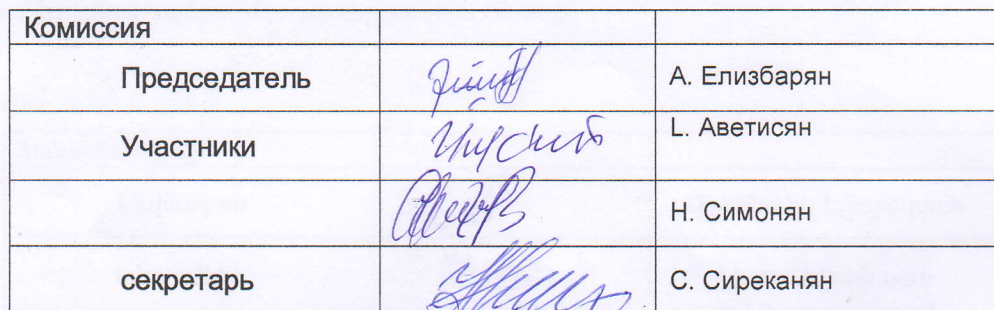 Комиссия
Председатель А. Елизбарян
Участники L. Аветисян
Н. Симонян
секретарь С. Сиреканян